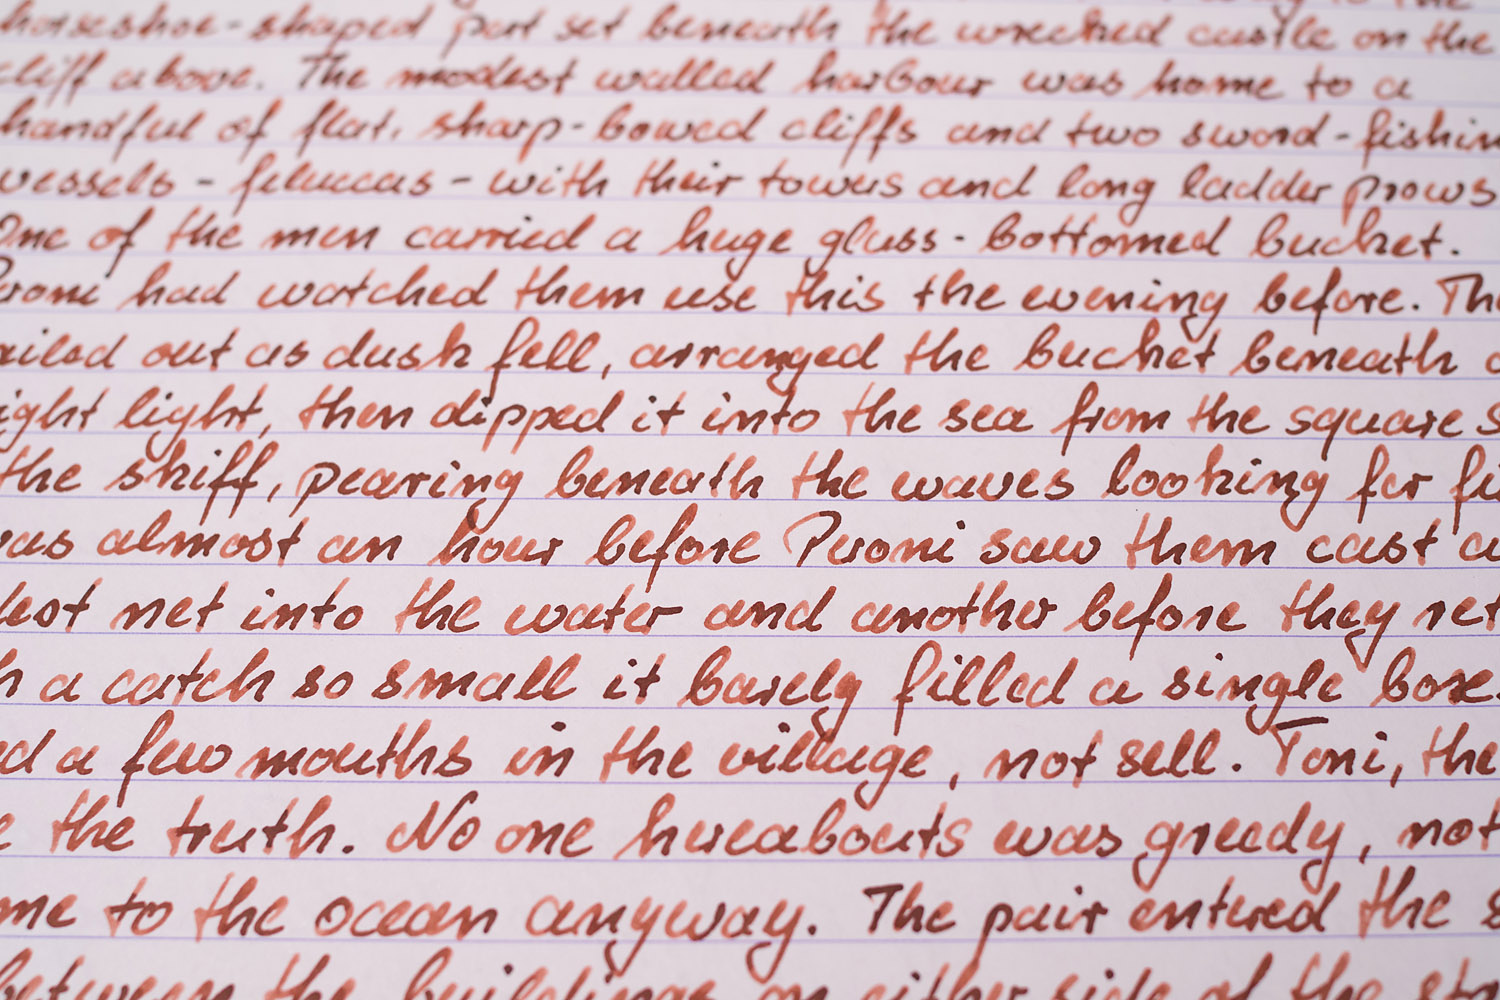 to the
horseshoe-shaped port set beneath the wrecked castle on the
cliff above. The modest walled harbour was home to a
handful of flat, sharp-bowed cliffs and two sword-fishin
vessels - feluccas - with their towers and long ladder prows
One of the men carried a huge glass-bottomed bucket.
had watched them use this the evening before. The
ailed out as dusk fell, arranged the bucket beneath a
ight light, then dipped it into the sea from the square s
the skiff, pearing beneath the waves looking for fi
was almost an hour before Peroni saw them cast a
dest net into the water and another before they ret
h a catch so small it barely filled a single box.
ed a few mouths in the village, not sell. Toni, the
e the truth. No one hereabouts was greedy, not
me to the ocean anyway. The pair entered the s
between the buildings on either side of the